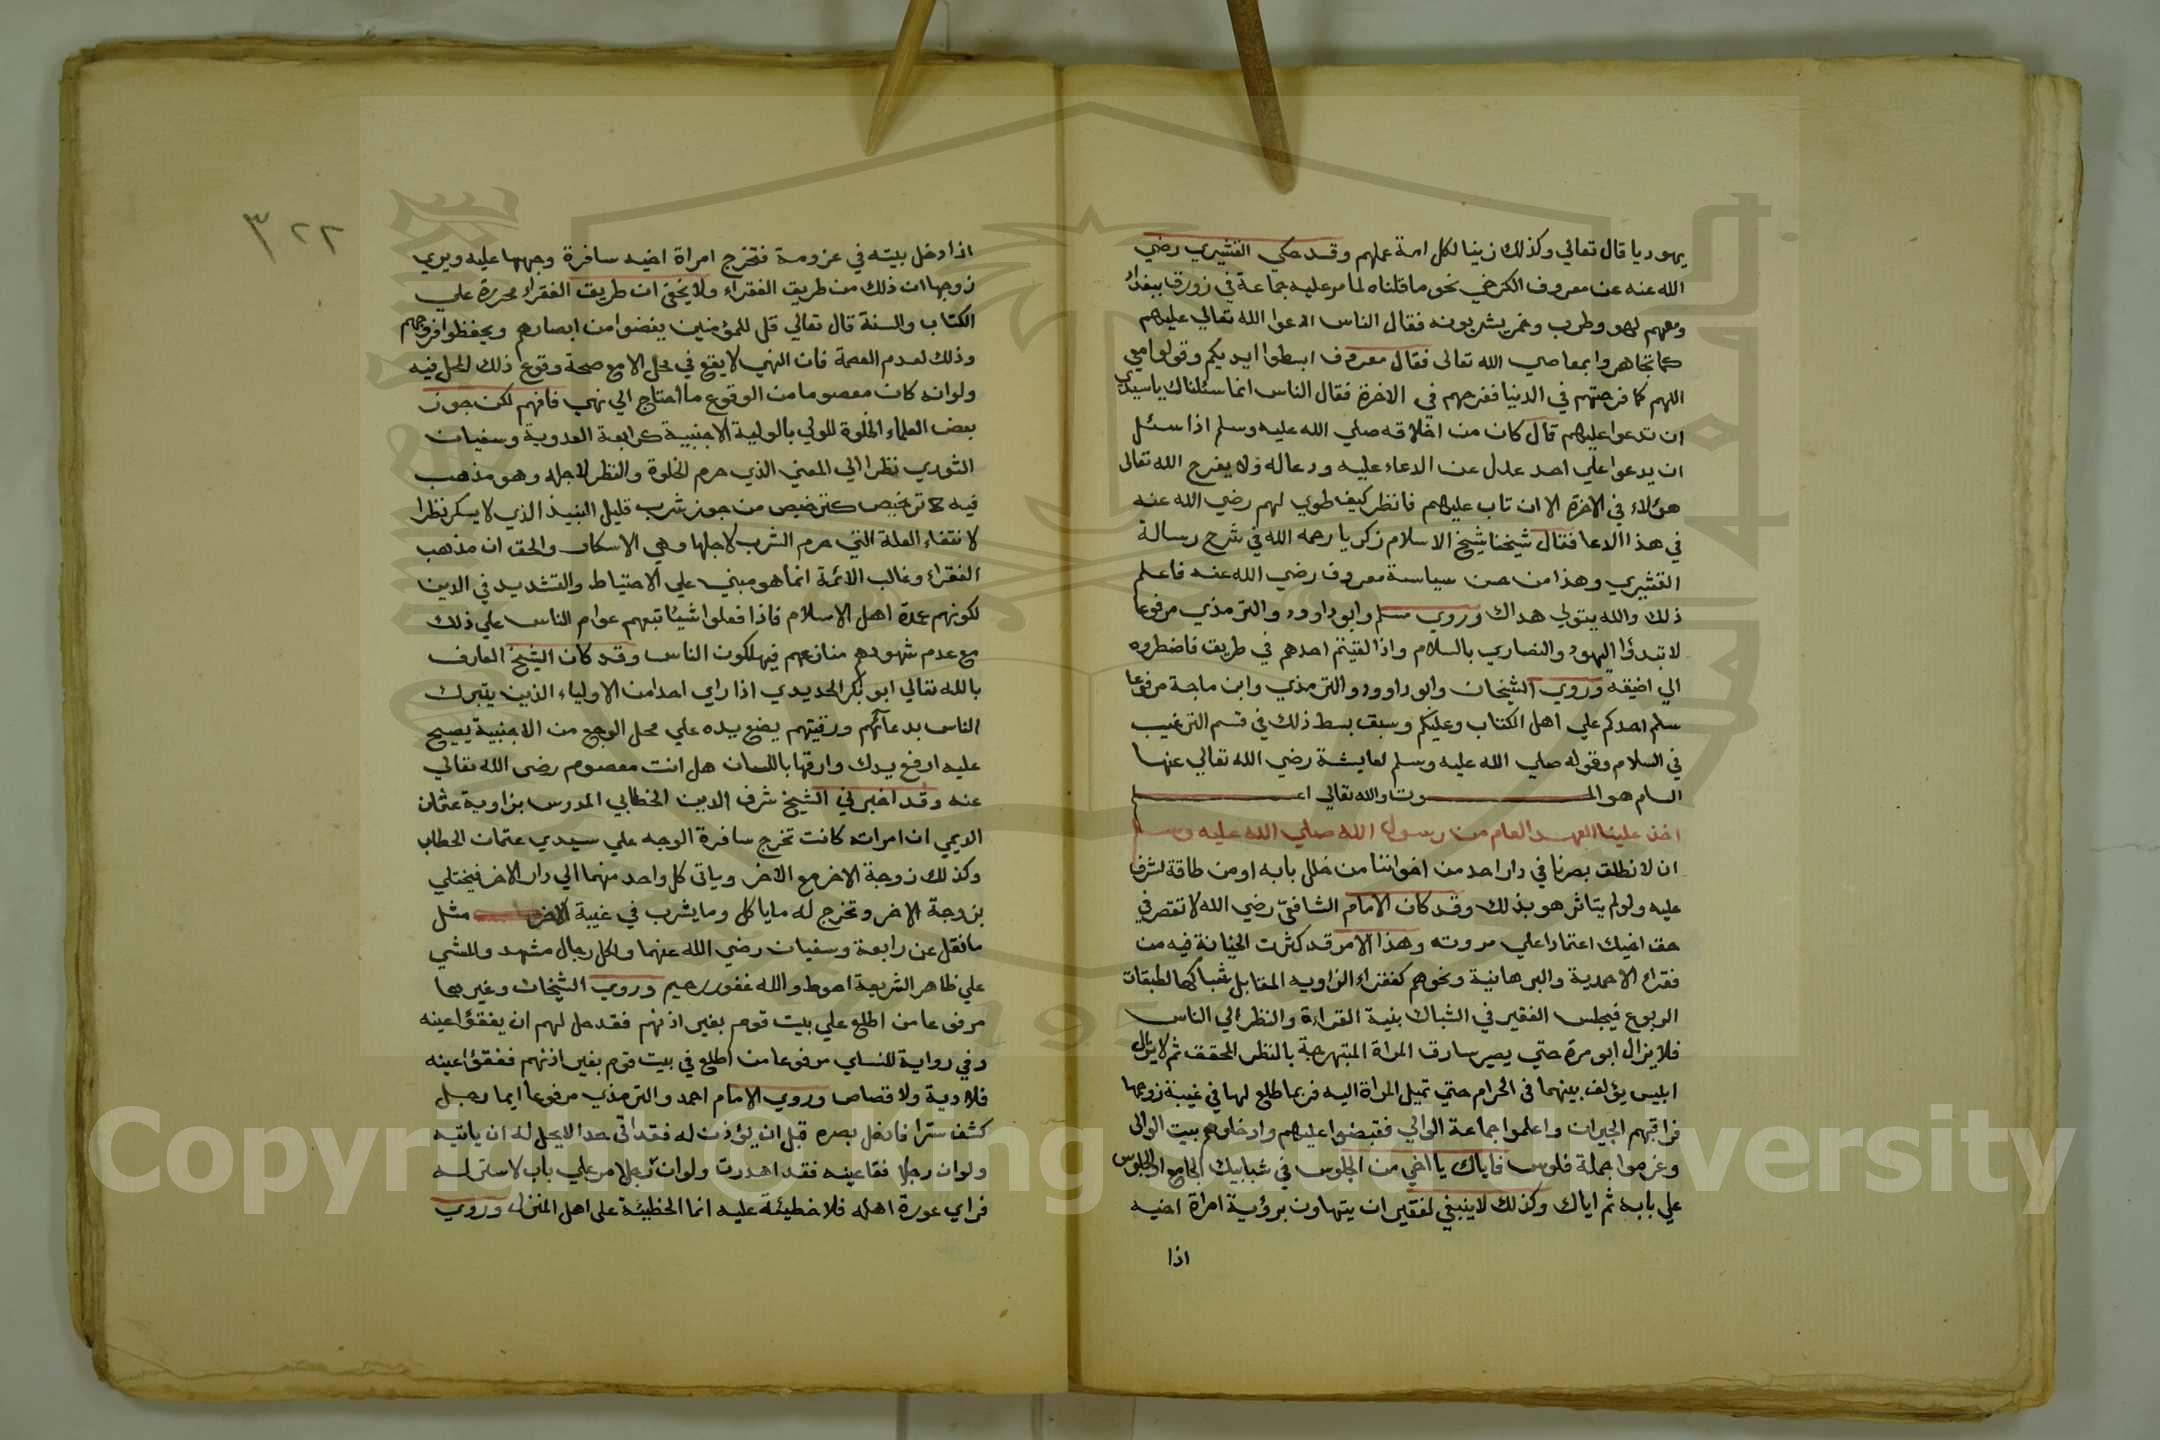 يهوديا قال تعالي وكذلك زينا لكل امة عملهم وقد حكي القشيري رضي
الله عنه عن معروف الكرخي نحو ما قلناه لما مر عليه جماعة في زورق ببغداد
ومعهم لهو وطرب وخمر يشربونه فقال الناس ادعوا الله تعالي عليهم
كما تجاهروا بمعاصي الله تعالى فقال معروف ابسطوا ايديكم وقولوا معي
اللهم كما فرحتهم في الدنيا ففرحهم في الاخرة فقال الناس انما سئلناك يا سيدي
ان تدعوا عليهم قال كان من اخلاقه صلي الله عليه وسلم اذا سئل
ان يدعوا علي احد عدل عن الدعاء عليه ودعا له ولا يفرح الله تعالى
هؤلاء في الاخرة الا ان تاب عليهم فانظر كيف طوي لهم رضي الله عنه
في هذا الدعا فقال شيخنا شيخ الاسلام زكريا رحمه الله في شرح رسالة
القشيري وهذا من حسن سياسة معروف رضي الله عنه فاعلم
ذلك والله يتولي هداك وروي مسلم وابو داوود والترمذي مرفوعا
لا تبدؤا اليهود والنصاري بالسلام واذا لقيتم احدهم في طريق فاضطروه
الي اضيقه وروي الشيخان وابو داوود والترمذي وابن ماجة مرفوعا
سلم احدكم علي اهل الكتاب وعليكم وسبق بسط ذلك في قسم الترغيب
في السلام وقوله صلي الله عليه وسلم لعايشة رضي الله تعالي عنها
السام هو الموت والله تعالي اعلم
اخذ علينا العهد العام من رسول الله صلي الله عليه وسلم
ان لا نطلق بصرنا في دار احد من اخواننا من خلل بابه او من طاقة تشرف
عليه ولو لم يتاثر هو بذلك وقد كان الامام الشافعي رضي الله لا تقصر في
حق اخيك اعتمادا علي مروته وهذا الامر قد كثرت الخيانة فيه من
فقراء الاحمدية والبرهانية ونحوهم كفقراء الزاويه المقابل شباكها لطبقات
الربوع فيجلس الفقير في الشباك بنية القراءة والنظر الي الناس
فلا يزال ابو مرة حتي يصير سارق المراة المتبهرجة بالنظر المحقق ثم لا يزال
ابليس يؤلف بينهما في الحرام حتي تميل المراة اليه فربما طلع لها في غيبة زوجها
فراقبهم الجيران واعلموا جماعة الوالي فقبضوا عليهم وادخلوهم بيت الوالى
وغرموا جملة فلوس فاياك يا اخي من الجلوس في شبابيك الجامع او الجلوس
علي بابه ثم اياك وكذلك لا ينبغي لفقير ان يتهاون برؤية امراة اخيه
اذا
٣٢٢
اذا دخل بيته في عزومة فتخرج امراة اخيه سافرة وجهها عليه ويري
زوجها ان ذلك من طريق الفقراء ولا يخفى ان طريق الفقراء محررة علي
الكتاب والسنة قال تعالي قل للمؤمنين يغضوا من ابصارهم ويحفظوا فروجهم
وذلك لعدم العصمة فان النهي لا يقع في محل الا مع صحة وقوع ذلك المحل فيه
ولو انه كان معصوما من الوقوع ما احتاج الي نهي فافهم لكن جوز
بعض العلماء الخلوة للولي بالولية الاجنبية كرابعة العدوية وسفيان
الثوري نظرا الي المعني الذي حرم الخلوة والنظر لاجله وهو مذهب
فيه ترخيص كترخيص من جوز شرب قليل النبيذ الذي لا يسكر نظرا
لانتفاء العلة التي حرم الشرب لاجلها وهي الاسكار والحق ان مذهب
الفقراء وغالب الائمة انما هو مبني علي الاحتياط والتشديد في الدين
لكونهم عمدة اهل الاسلام فاذا فعلوا شيئا تبعهم عوام الناس علي ذلك
مع عدم شهودهم منازعهم فيهلكون الناس وقد كان الشيخ العارف
بالله تعالي ابو بكر الحديدي اذا راي احدا من الاولياء الذين يتبرك
الناس بدعائهم ورقيتهم يضع يده علي محل الوجع من الاجنبية يصيح
عليه ارفع يدك وارقها باللسان هل انت معصوم رضى الله تعالي
عنه وقد اخبرني الشيخ شرف الدين الخطابي المدرس بزاوية عثمان
الديمي ان امراته كانت تخرج سافرة الوجه علي سيدي عثمان الحطاب
وكذلك زوجة الاخر مع الآخر وياتى كل واحد منهما الي دار الاخر فيختلي
بزوجة الاخر وتخرج له ما ياكل وما يشرب في غيبة الاخر مثل
ما نقل عن رابعة وسفيان رضي الله عنهما ولكل رجال مشهد والمشي
علي ظاهر الشريعة احوط والله غفور رحيم وروي الشيخان وغيرهما
مرفوعا من اطلع علي بيت قوم بغير اذنهم فقد حل لهم ان يفقؤا عينه
وفي رواية للنساي مرفوعا من اطلع في بيت قوم بغير اذنهم ففقؤا عينه
فلا دية ولا قصاص وروي الامام احمد والترمذي مرفوعا ايما رجل
كشف سترا فادخل بصره قبل ان يؤذن له فقد اتى حدا لا يحل له ان ياتيه
ولو ان رجلا فقا عينه فقد اهدرت ولو ان رجلا مر علي باب لا ستر له
فراي عورة اهله فلا خطيئة عليه انما الخطيئة على اهل المنزل وروي
Copyright © King Saud University